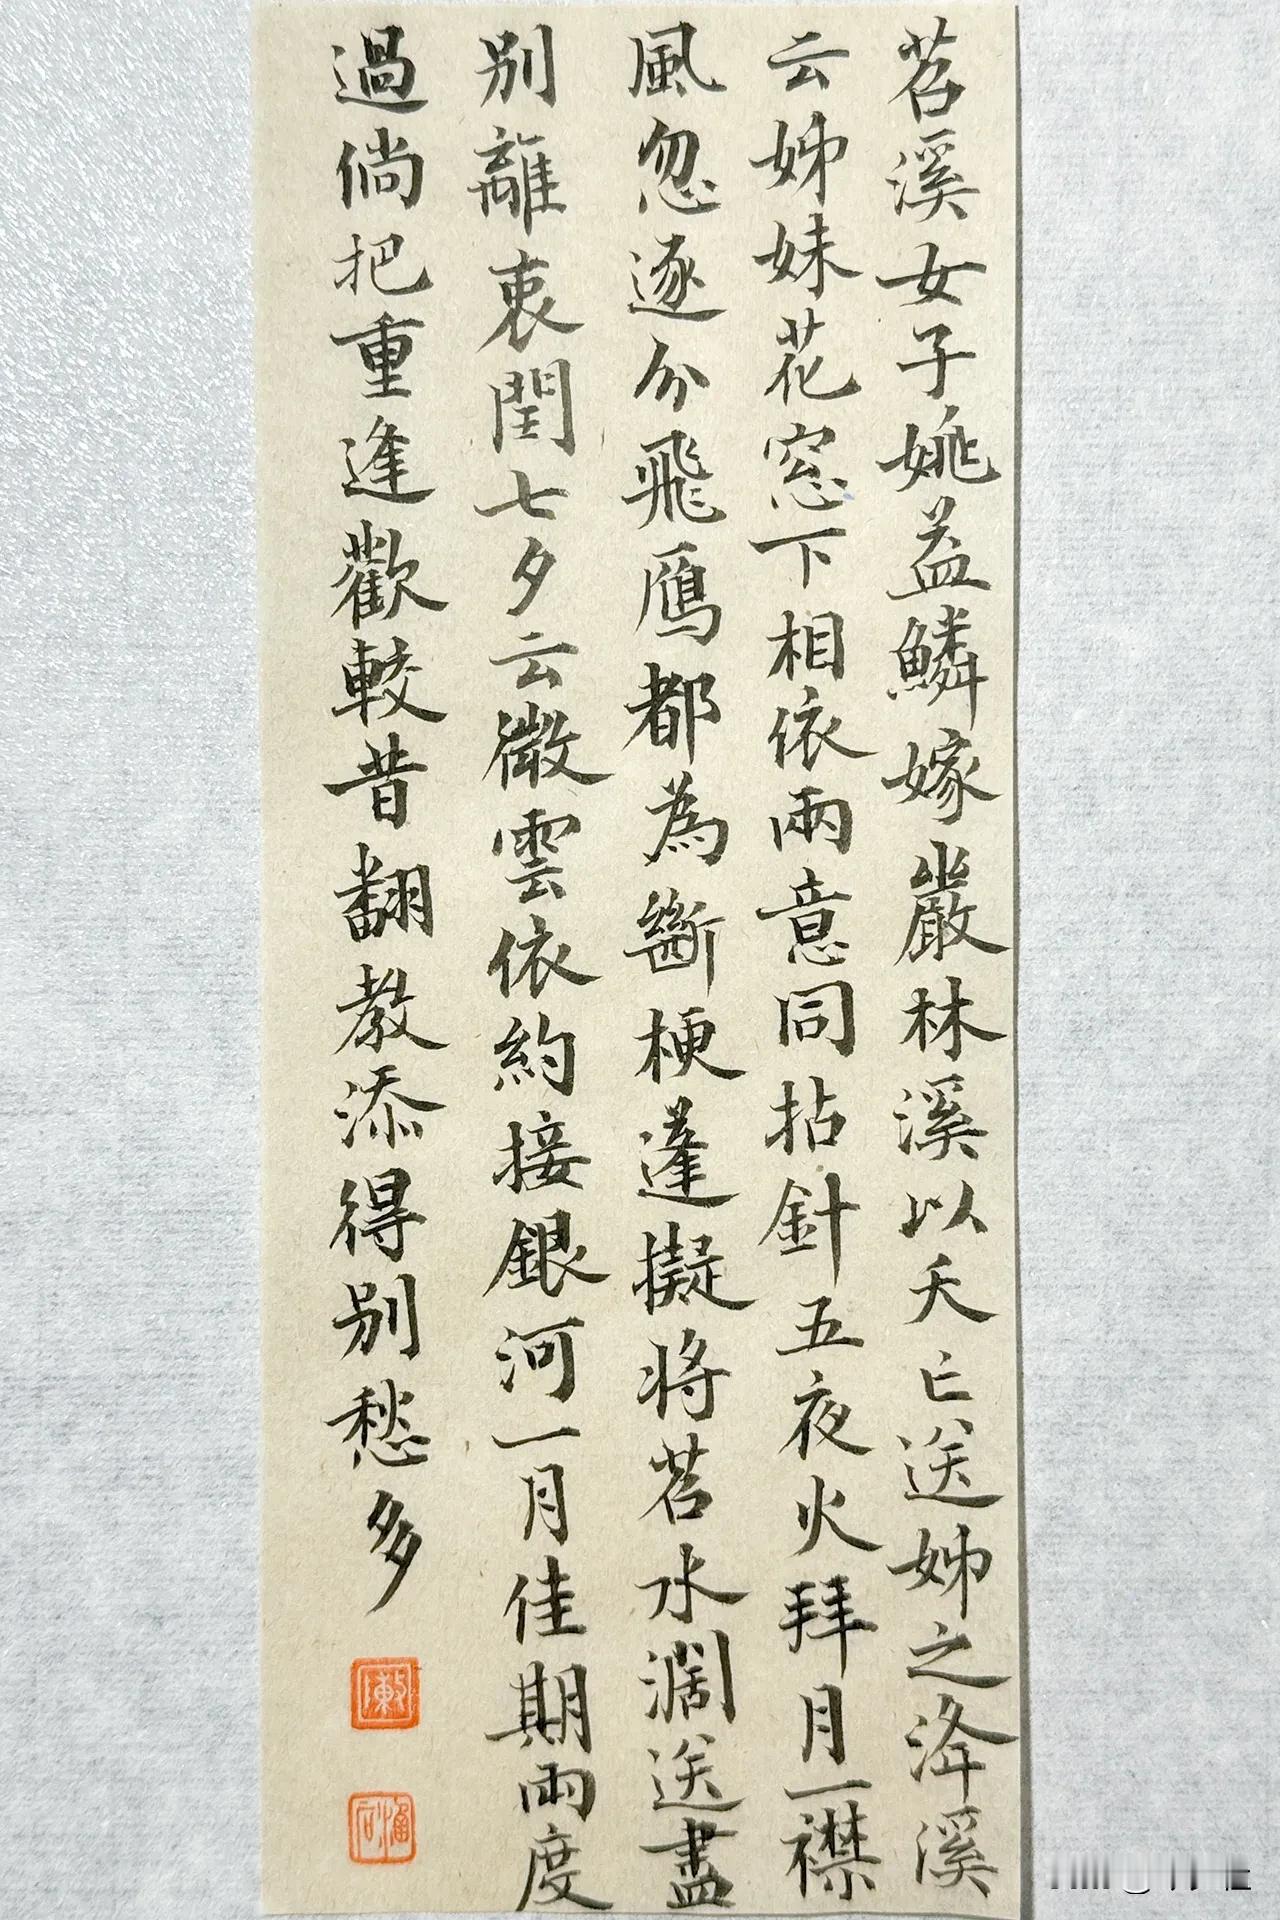 苕溪女子姚益鱗嫁嚴林溪以夭亡送姊之泽溪
云姊妹花窓下相依兩意同拈針五夜火拜月一襟
風忽逐分飛鴈都為斷梗蓬擬將苕水濶送盡
別離衷閏七夕云微雲依約接銀河一月佳期兩度
過倘把重逢歡較昔翻教添得別愁多